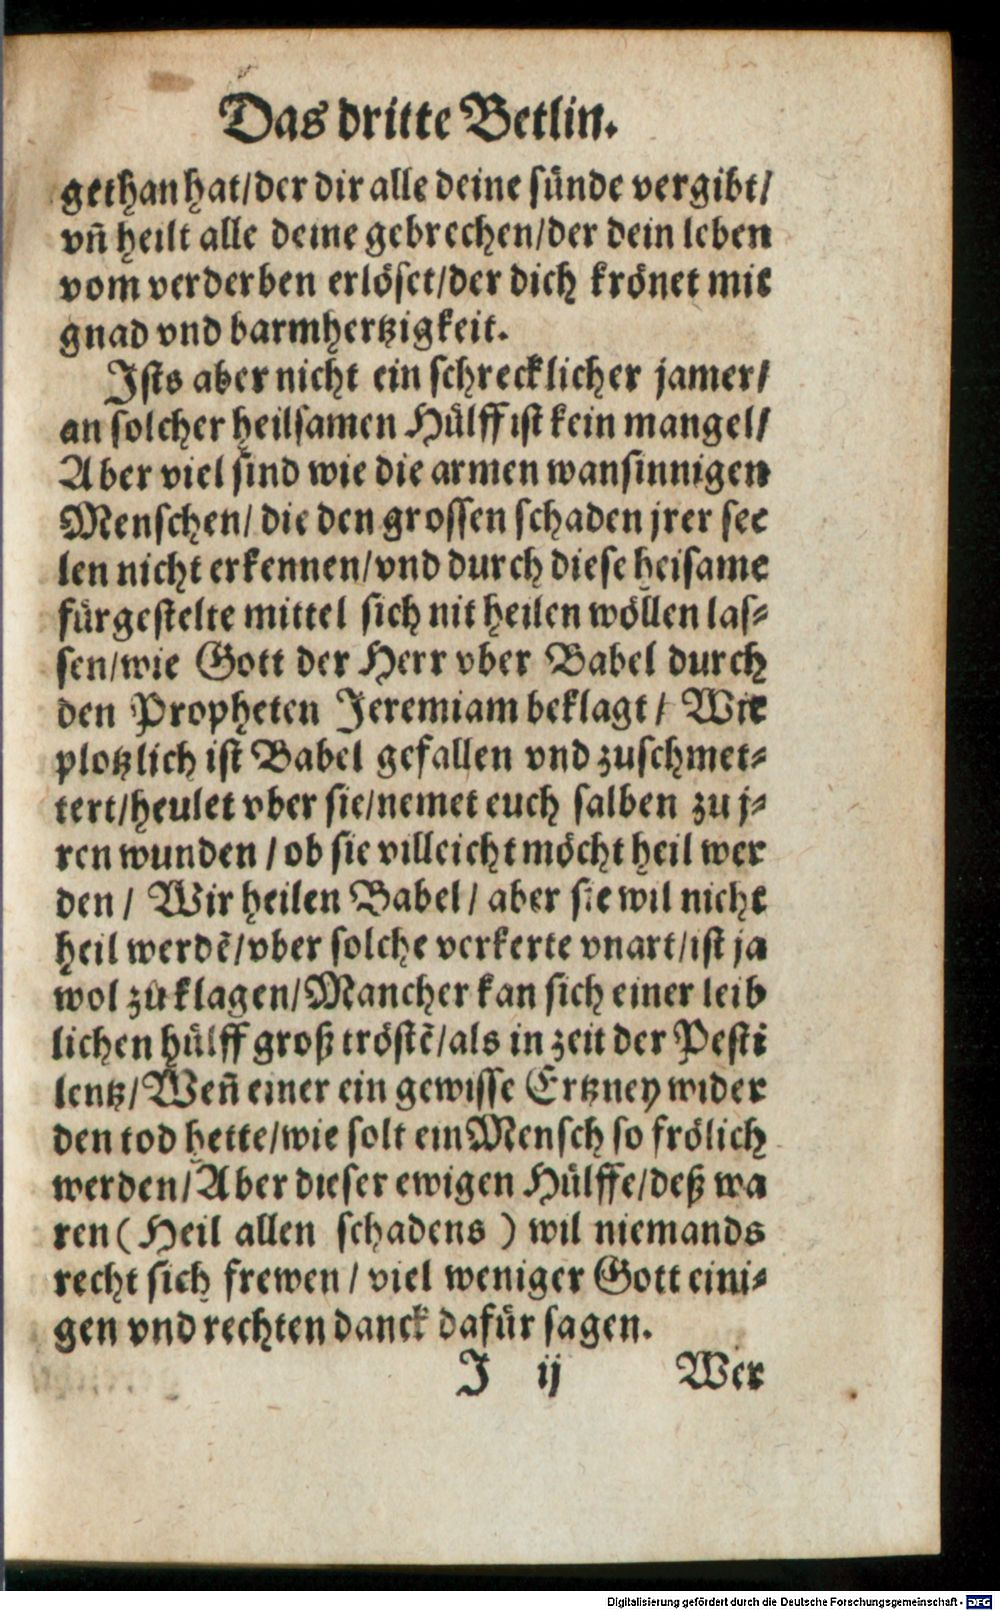 Das dritte Betlin.
gethan hat/der dir alle deine sünde vergibt/
vñ heilt alle deine gebrechen/der dein leben
vom verderben erlöset/der dich krönet mit
gnad vnd barmhertzigkeit.
Ists aber nicht ein schrecklicher jamer/
an solcher heilsamen Hülff ist kein mangel/
Aber viel sind wie die armen wansinnigen
Menschen/ die den grossen schaden jrer see
len nicht erkennen/vnd durch diese heisame
fürgestelte mittel sich nit heilen wöllen las⸗
sen/wie Gott der Herr vber Babel durch
den Propheten Jeremiam beklagt/ Wie
plotzlich ist Babel gefallen vnd zuschmet⸗
tert/heulet vber sie/nemet euch salben zu j⸗
ren wunden / ob sie villeicht möcht heil wer
den/ Wir heilen Babel/ aber sie wil nicht
heil werdẽ/vber solche verkerte vnart/ist ja
wol zu klagen/Mancher kan sich einer leib
lichen hülff groß tröstẽ/als in zeit der Pesti
lentz/Weñ einer ein gewisse Ertzney wider
den tod hette/wie solt ein Mensch so frölich
werden/Aber dieser ewigen Hülffe/deß wa
ren (Heil allen schadens ) wil niemands
recht sich frewen/ viel weniger Gott eini⸗
gen vnd rechten danck dafür sagen.
J ij Wer
Digitalisierung gefördert durch die Deutsche Forschungsgemeinschaft - DFG